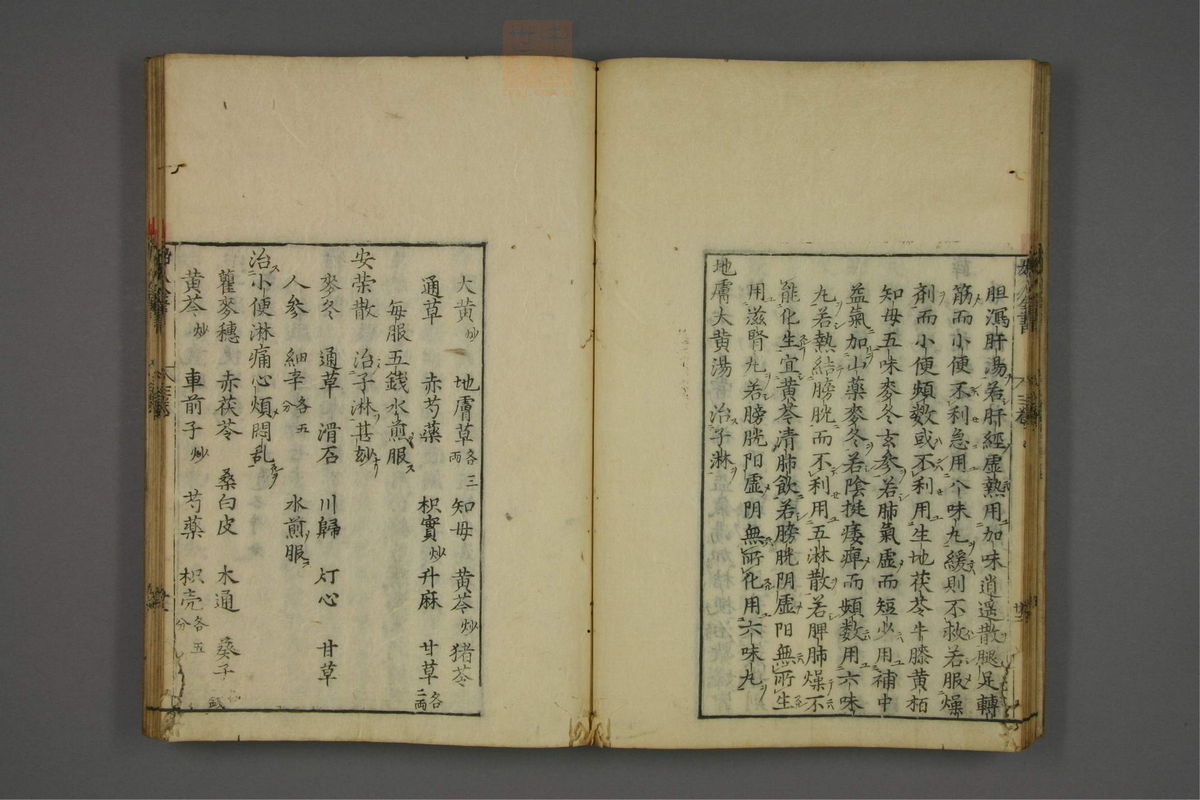 胆瀉肝湯若肝經虚熱用加味逍遥散腿足轉
筋而小便不利急用八味丸緩則不救若服燥
剤而小便頻数或不利用生地茯苓牛膝黄栢
知母五味麥冬玄参若肺氣虚而短少用補中
益氣加山藥麥冬若陰挺痿痺而頻数用六味
丸若熱結膀胱而不利用五淋散若脾肺燥不
能化生宜黄芩清肺飲若膀胱阴虚阳無所生
用滋腎丸若膀胱阳虚阴無所化用六味丸
地膚大黄湯 治子淋
大黄炒 地膚草各三兩 知母 黄芩炒 猪苓
通草 赤芍藥 枳實炒 升麻 甘草各二兩
毎服五錢水煎服
安栄散 治子淋甚妙
麥冬 通草 滑石 川歸 灯心 甘草
人参 細辛各五分 水煎服
治小便淋痛心煩悶乱
瞿麥穗 赤茯苓 桑白皮 木通 葵子
黄芩炒 車前子炒 芍藥 枳壳各五分